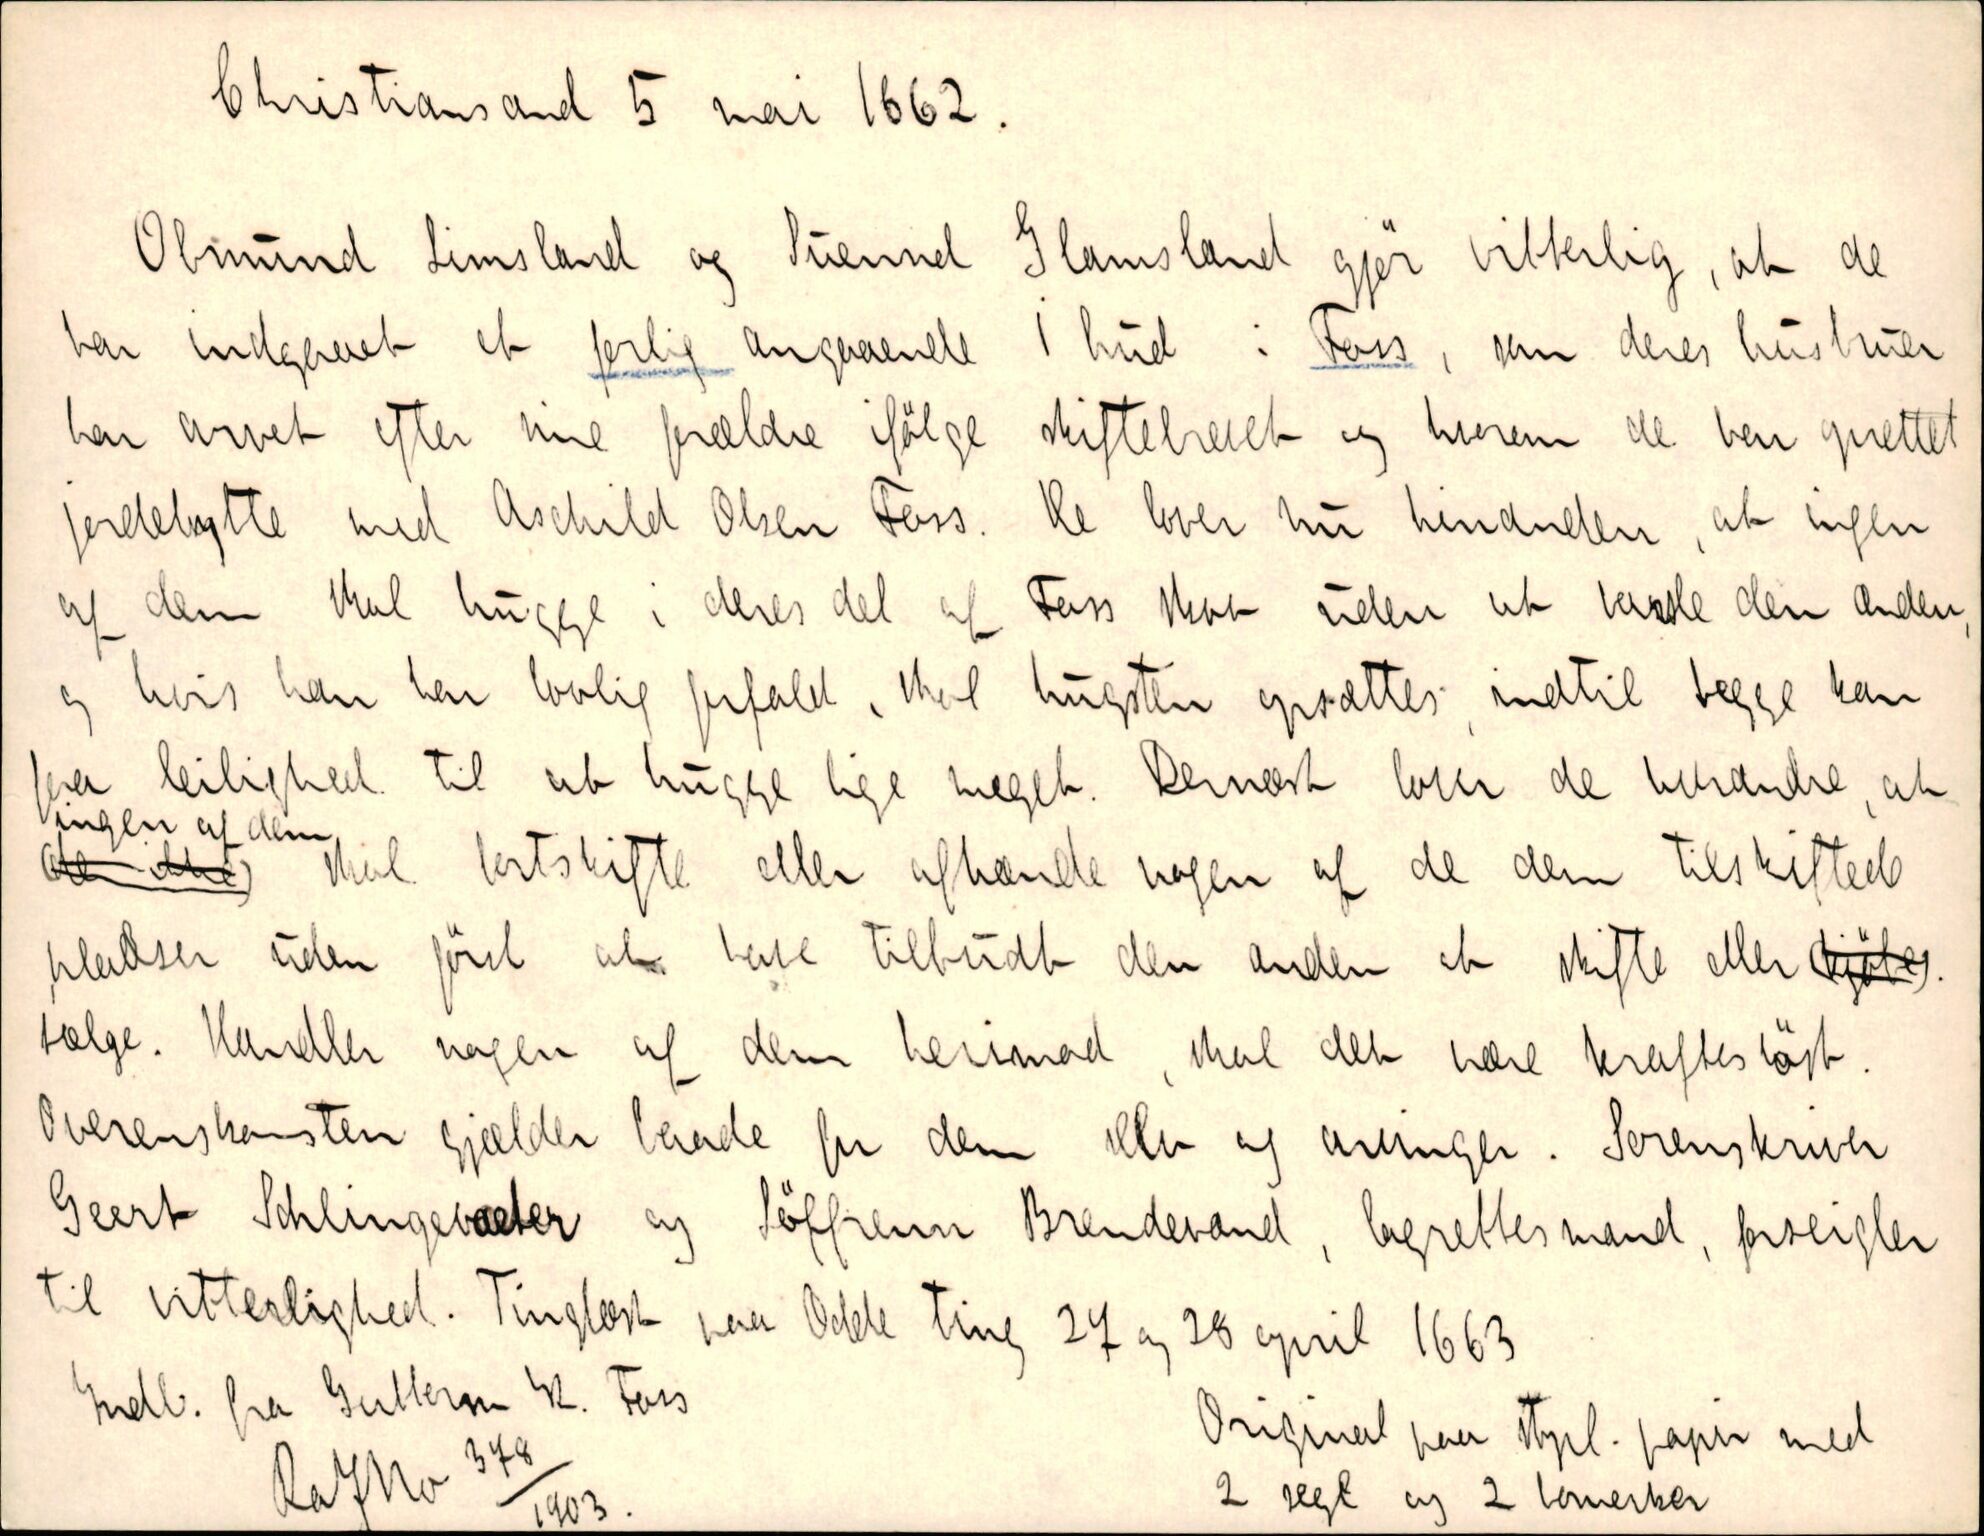 Christiansand 5 mai 1662.
Obmund Limsland og Suennd Glamsland gjör vitterlig, at de
har indgaaet et forlig angaaende 1 hud i Foss, som deres hustruer
har arvet efter sine forældre ifölge skiftebrevet og hvorom de har oprettet
jordebytte med Aschild Olsen Foss. De lover nu hinanden, at ingen
af dem skal hugge i deres del af Foss skov uden at varsle den anden,
og hvis han har lovlig forfald, skal hugsten opsættes, indtil begge kan
faa leilighed til at hugge lige meget. Dernæst lover de hverandre, at
ingen af dem
skal bortskifte eller afhænde nogen af de dem tilskiftede
pladser uden först at have tilbudt den anden at skifte eller
sælge. Handler nogen af dem herimod, skal det være krafteslöst.
Overenskomsten gjælder baade for dem selv og arvinger. Sorenskriver
Geert Schlingevaeter og Söffrenn Brendevand, lagrettesmand, forseigler
til vitterlighed. Tinglæst paa Odde ting 27 og 28 april 1663
Indl. fra Guttorm K. Foss
RaJNo 378/1903.
Original paa stpl. papir med
2 segl og 2 bomerker